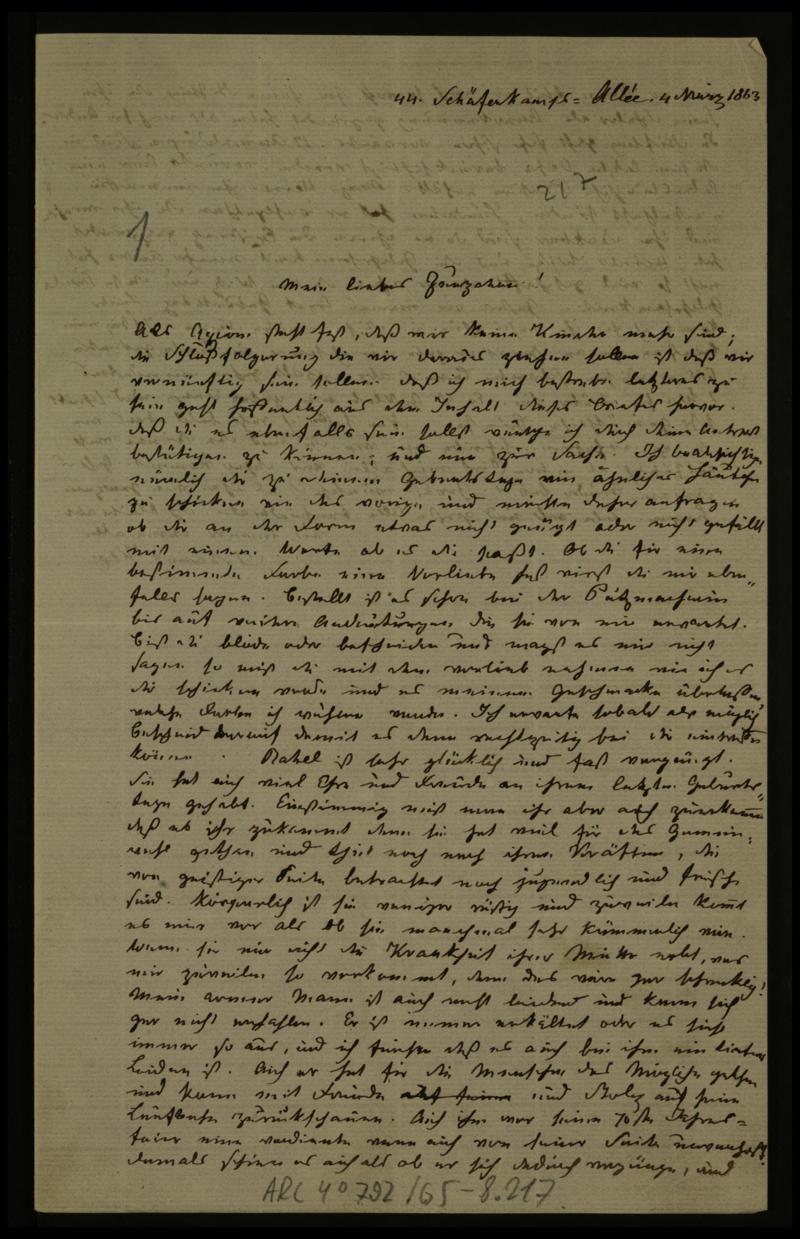 44. Schäferkamps=Allée. 4 März 1863
217
1
Mein liebes Zunzchen!
Als Axiom steht fest, daß wir keine Kinder mehr sind;
die Schlußfolgerung die wir daraus ziehen sollen ist daß wir
vernünftig sein sollen. Daß ich mich bestrebe letzteres zu
sein geht hoffentlich aus dem Inhalt dieses Briefes hervor.
Daß du es ebenfalls sein sollst wünsche ich durch deine Antwort
bestätigen zu können; und nun zur Sache. Ich beabsichtige
nämlich dir zu deinem Geburtstage ein ähnliches Häubchen
zu schicken wie das vorige und möchte daher anfragen
ob dir an der Form etwas nicht genügt oder nicht gefällt
mit einem Worte ob es dir paßt. Ob du für eine
bestimmte Farbe eine Vorliebe hast wirst du mir eben"
falls sagen. Bestellt ist es schon bei der Putzmacherin
bis auf weitere Andeutungen die sie von mir erwartet.
Bist du blöde oder bescheiden und magst es mir nicht
sagen so mußt du mit dem vorlieb nehmen wie ich es
dir schicken werde und es meinem Geschmacke überlassen
welche Farben ich wählen werde. Ich erwarte sobald als möglich
Bescheid darauf damit es dann rechtzeitig bei dir eintreffen
könne. Rahel ist sehr glücklich und fast vergnügt.
Sie hat auch viel Ehre und Freude an ihrem letzten Geburts"
tage gehabt. Einstimmig muß man ihr aber auch zuerkennen
daß es ihr zukommt denn sie hat viel für das Gemein=
wohl gethan und thut noch nach ihren Kräften, die
von geistiger Seite betrachtet noch jugendlich und frisch
sind. Körperlich ist sie weniger rüstig und zuweilen kommt
es mir vor als ob sie manchmal sehr kümmerlich wäre.
Wenn sie nur nicht die Krankheit ihrer Mutter erbt, was
mir zuweilen so vorkommt, denn das wäre gar schrecklich!
Mein armer Mann ist auch recht leidend und kann sich
gar nicht erholen. Er ist immer erkältet oder es sieht
immer so aus, und ich fürchte daß es auch bei ihm ein
Leiden ist. Auch er hat für die Menschen das Mögliche gethan
und kann mit Freude und Stolz auf seine
Laufbahn zurückschauen. Auch ihm war seine 70ste Jahres=
feier eine verdiente wenn auch von seiner Seite unerwartet.
Damals schien es auch als ob er sich dadurch verjünge, und
ARC 4° 792/G5-8.217